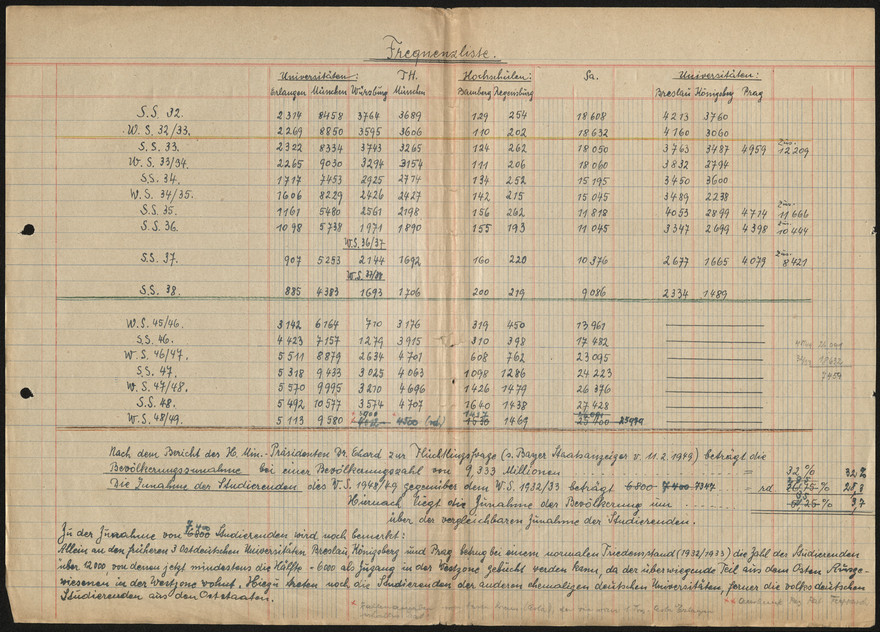 Frequenzliste.
Universitäten: T.H. Hochschulen: Sa. Universitäten:
Erlangen München Würzburg München Bamberg Regensburg Breslau Königsberg Prag
S.S. 32. 2314 8458 3764 3689 129 254 18 608 4213 3760
W.S. 32/33. 2269 8850 3595 3606 110 202 18 632 4160 3060
S.S. 33. 2322 8334 3743 3265 124 262 18 050 3763 3487 4959 Zus. 12 209
W.S. 33/34. 2265 9030 3294 3154 111 206 18 060 3832 2794
S.S. 34. 1717 7453 2925 2714 134 252 15 195 3450 3600
W.S. 34/35. 1606 8229 2426 2427 142 215 15 045 3489 2238
S.S. 35. 1161 5480 2561 2198 156 262 11 818 4053 2899 4714 Zus. 11 666
S.S. 36. 1098 5738 1971 1890 155 193 11 045 3347 2699 4398 Zus. 10 444
W.S. 36/37
S.S. 37. 907 5253 2144 1692 160 220 10 376 2677 1665 4079 Zus. 8 421
W.S. 37/38
S.S. 38. 885 4383 1693 1706 200 219 9 086 2334 1489
W.S. 45/46. 3142 6164 710 3176 319 450 13 961
S.S. 46. 4423 7157 1279 3915 310 398 17 482
W.S. 46/47. 5511 8879 2634 4701 608 762 23 095
S.S. 47. 5318 9433 3025 4063 1098 1286 24 223
W.S. 47/48. 5570 9995 3210 4696 1426 1479 26 376
S.S. 48. 5492 10 577 3574 4707 1640 1438 27 428
W.S. 48/49. 5113 9580 1469
Nach dem Bericht des H. Min.-Präsidenten Dr. Ehard zur Flüchtlingsfrage (s. Bayer Staatsanzeiger v. 11.2.1949) beträgt die
Bevölkerungszunahme bei einer Bevölkerungszahl von 9,333 Millionen = 32 % 32,%
Die Zunahme der Studierenden des W.S. 1948/49 gegenüber dem W.S. 1932/33 beträgt 6800 7400 7347 = rd.
Hiernach liegt die Zunahme der Bevölkerung um
über der vergleichbaren Zunahme der Studierenden.
Zu der Zunahme von 6800 Studierenden wird noch bemerkt:
Allein an den früheren 3 Ostdeutschen Universitäten Breslau Königsberg und Prag betrug bei einem normalen Friedensstand (1932/1933) die Zahl der Studierenden
über 12000 von denen jetzt mindestens die Hälfte - 6000 als Zugang in der Westzone gebucht werden kann, da der überwiegende Teil aus dem Osten Ausge-
wiesenen in der Westzone wohnt. Hiezu treten noch die Studierenden der anderen ehemaligen deutschen Universitäten, ferner die volksdeutschen
Studierenden aus den Oststaaten.